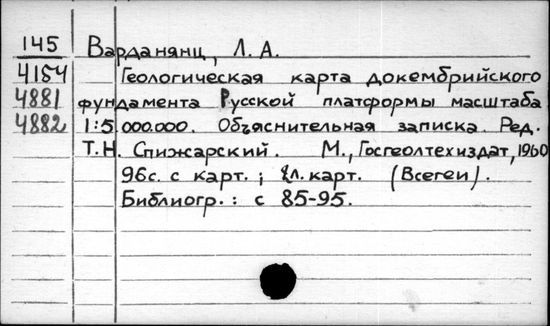 145 Варданянц, Л. А.
4154 Геологическая карта докембрийского
4881 фундамента Русской платформы масштаба
4882 1:5.000.000. Объяснительная записка. Ред.
Т.Н. Спижарский. М., Госгеолтехиздат, 1960
96с. с карт.; л. карт. (Всегеи).
Библиогр.: с 85-95.